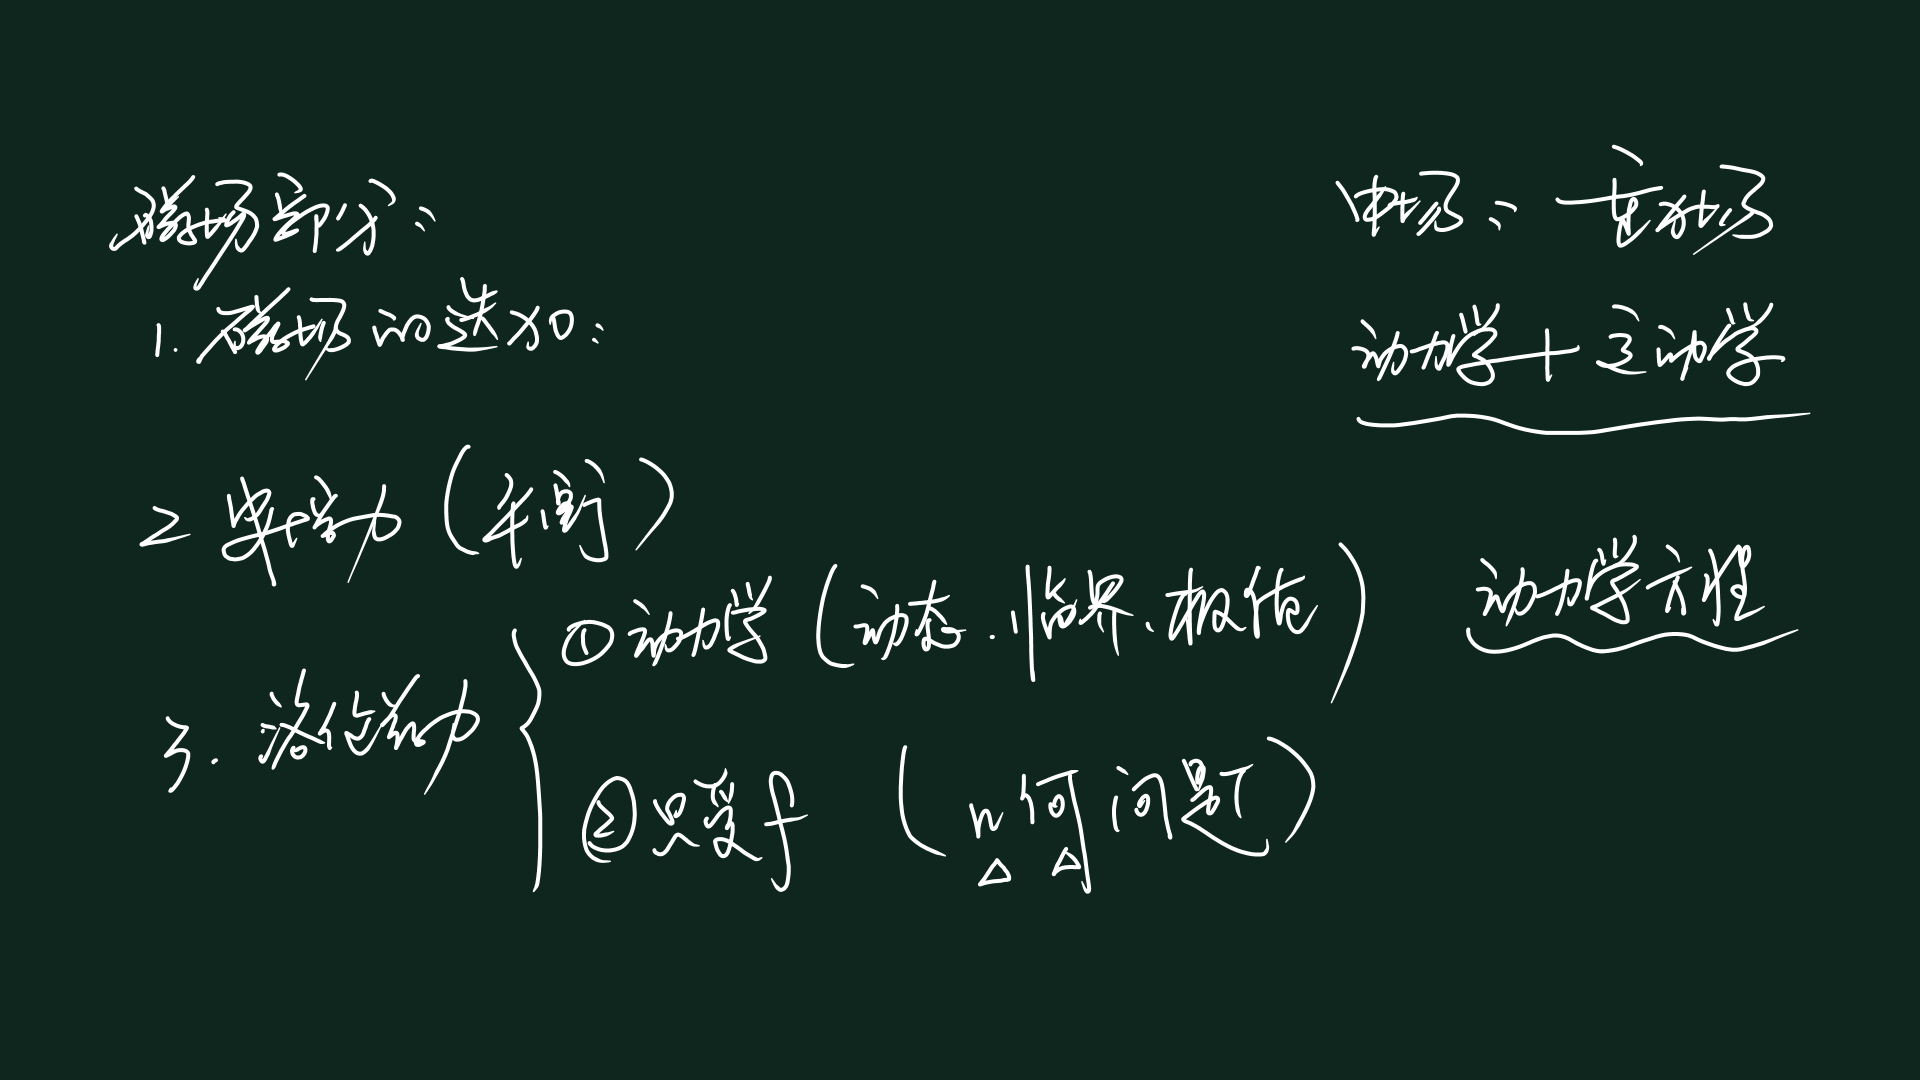 磁场部分:
1. 磁场的迭加:
2 安培力 (平衡)
3. 洛伦兹力
①动力学 (动态、临界、极值)
②只受f (几何问题)
电场: 重力场
动力学+运动学
动力学方程